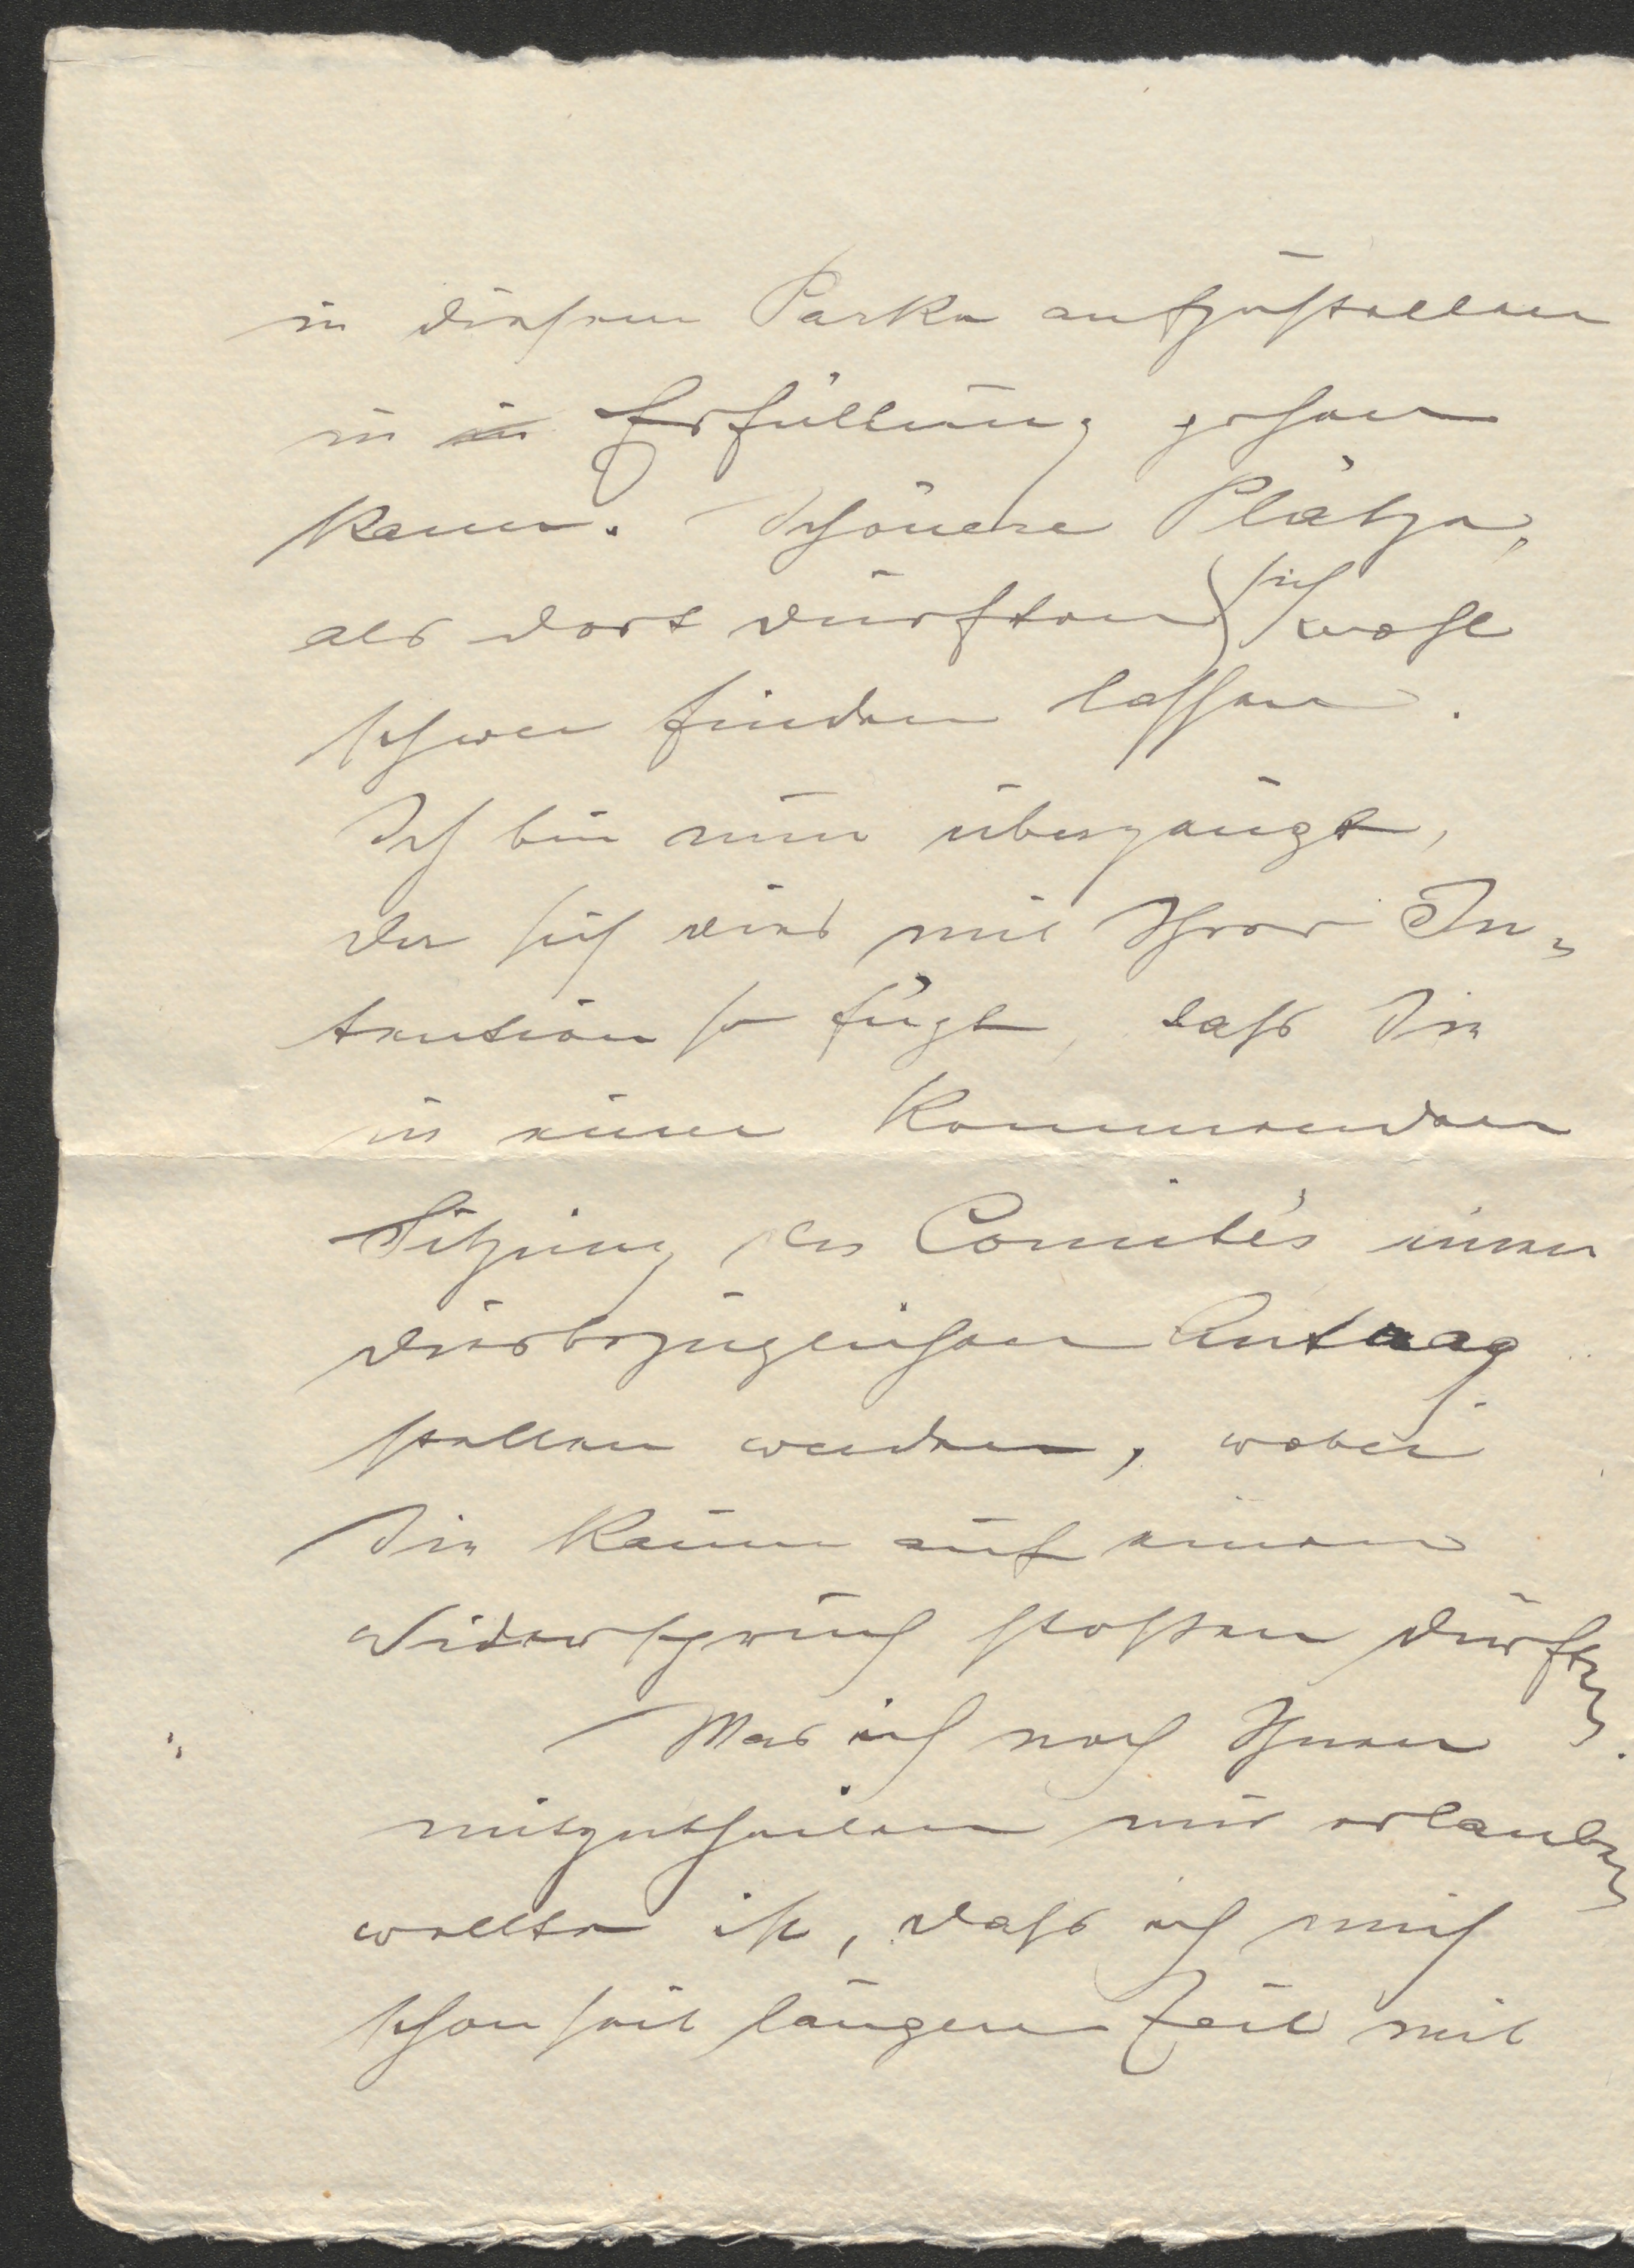 in diesem Parke aufzustellen
in in Erfüllung gehen
kann. Schönere Plätze,
als dort dürften sich wohl
schwer finden lassen.
Ich bin nun überzeugt,
der sich dies mit Ihrer In-
tention so fügt, dass Sie
in einer kommenden
Sitzung des Comités einen
diesbezüglichen Antrag
stellen werden, wobei
Sie kaum auf einen
Widerspruch stossen dürften.
Was ich noch Ihnen
mitzutheilen mir erlauben
wollte ist, dass ich mich
schon seit längerer Zeit mit